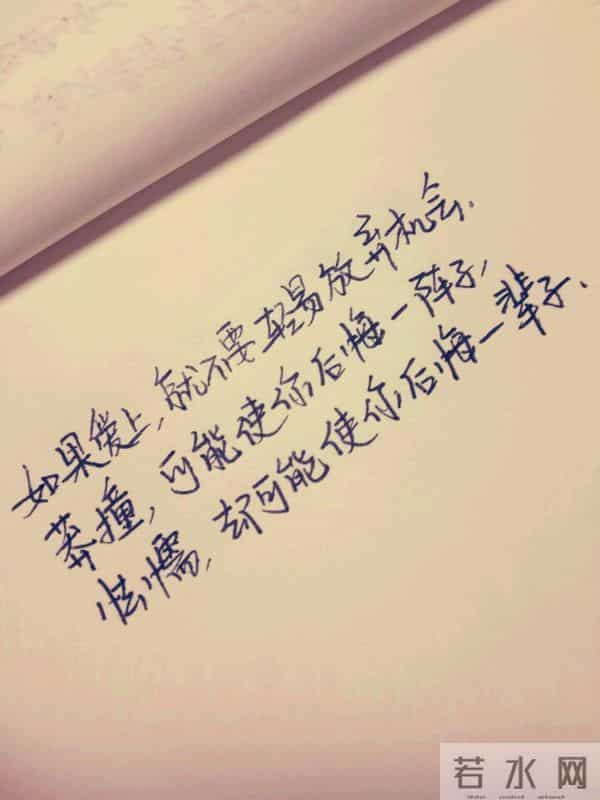 如果爱上，就不要轻易放弃机会.
莽撞，可能使你后悔一阵子，
怯懦，却可能使你后悔一辈子.
若水网